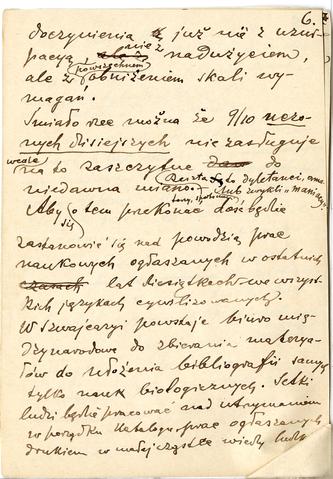 6.
doczynienia już nie z uzur-
pacyą nie z nadużyciem,
ale z powszechnem obniżeniem skali wy-
magań.
Śmiało rzec można że 9/10 uczo-
nych dzisiejszych nie zasługuje
wcale na to zaszczytne do
niedawna miano. Reszta to dyletanci, ama-
torzy, lub zwykli „maniacy"
Aby się o tem przekonać dość będzie
zastanowić się nad powodzią prac
naukowych ogłaszanych w ostatnich
czasach lat dziesiątkach we wszyst-
kich językach cywilizowanych.
W Szwajcaryi powstaje biuro mię-
dzynarodowe do zbierania materya-
łów do ułożenia bibliografii samych
tylko nauk biologicznych. Setki
ludzi będzie pracować nad utrzymaniem
w porządku katalogu prac ogłaszanych
drukiem w małej cząstce wiedzy ludz-